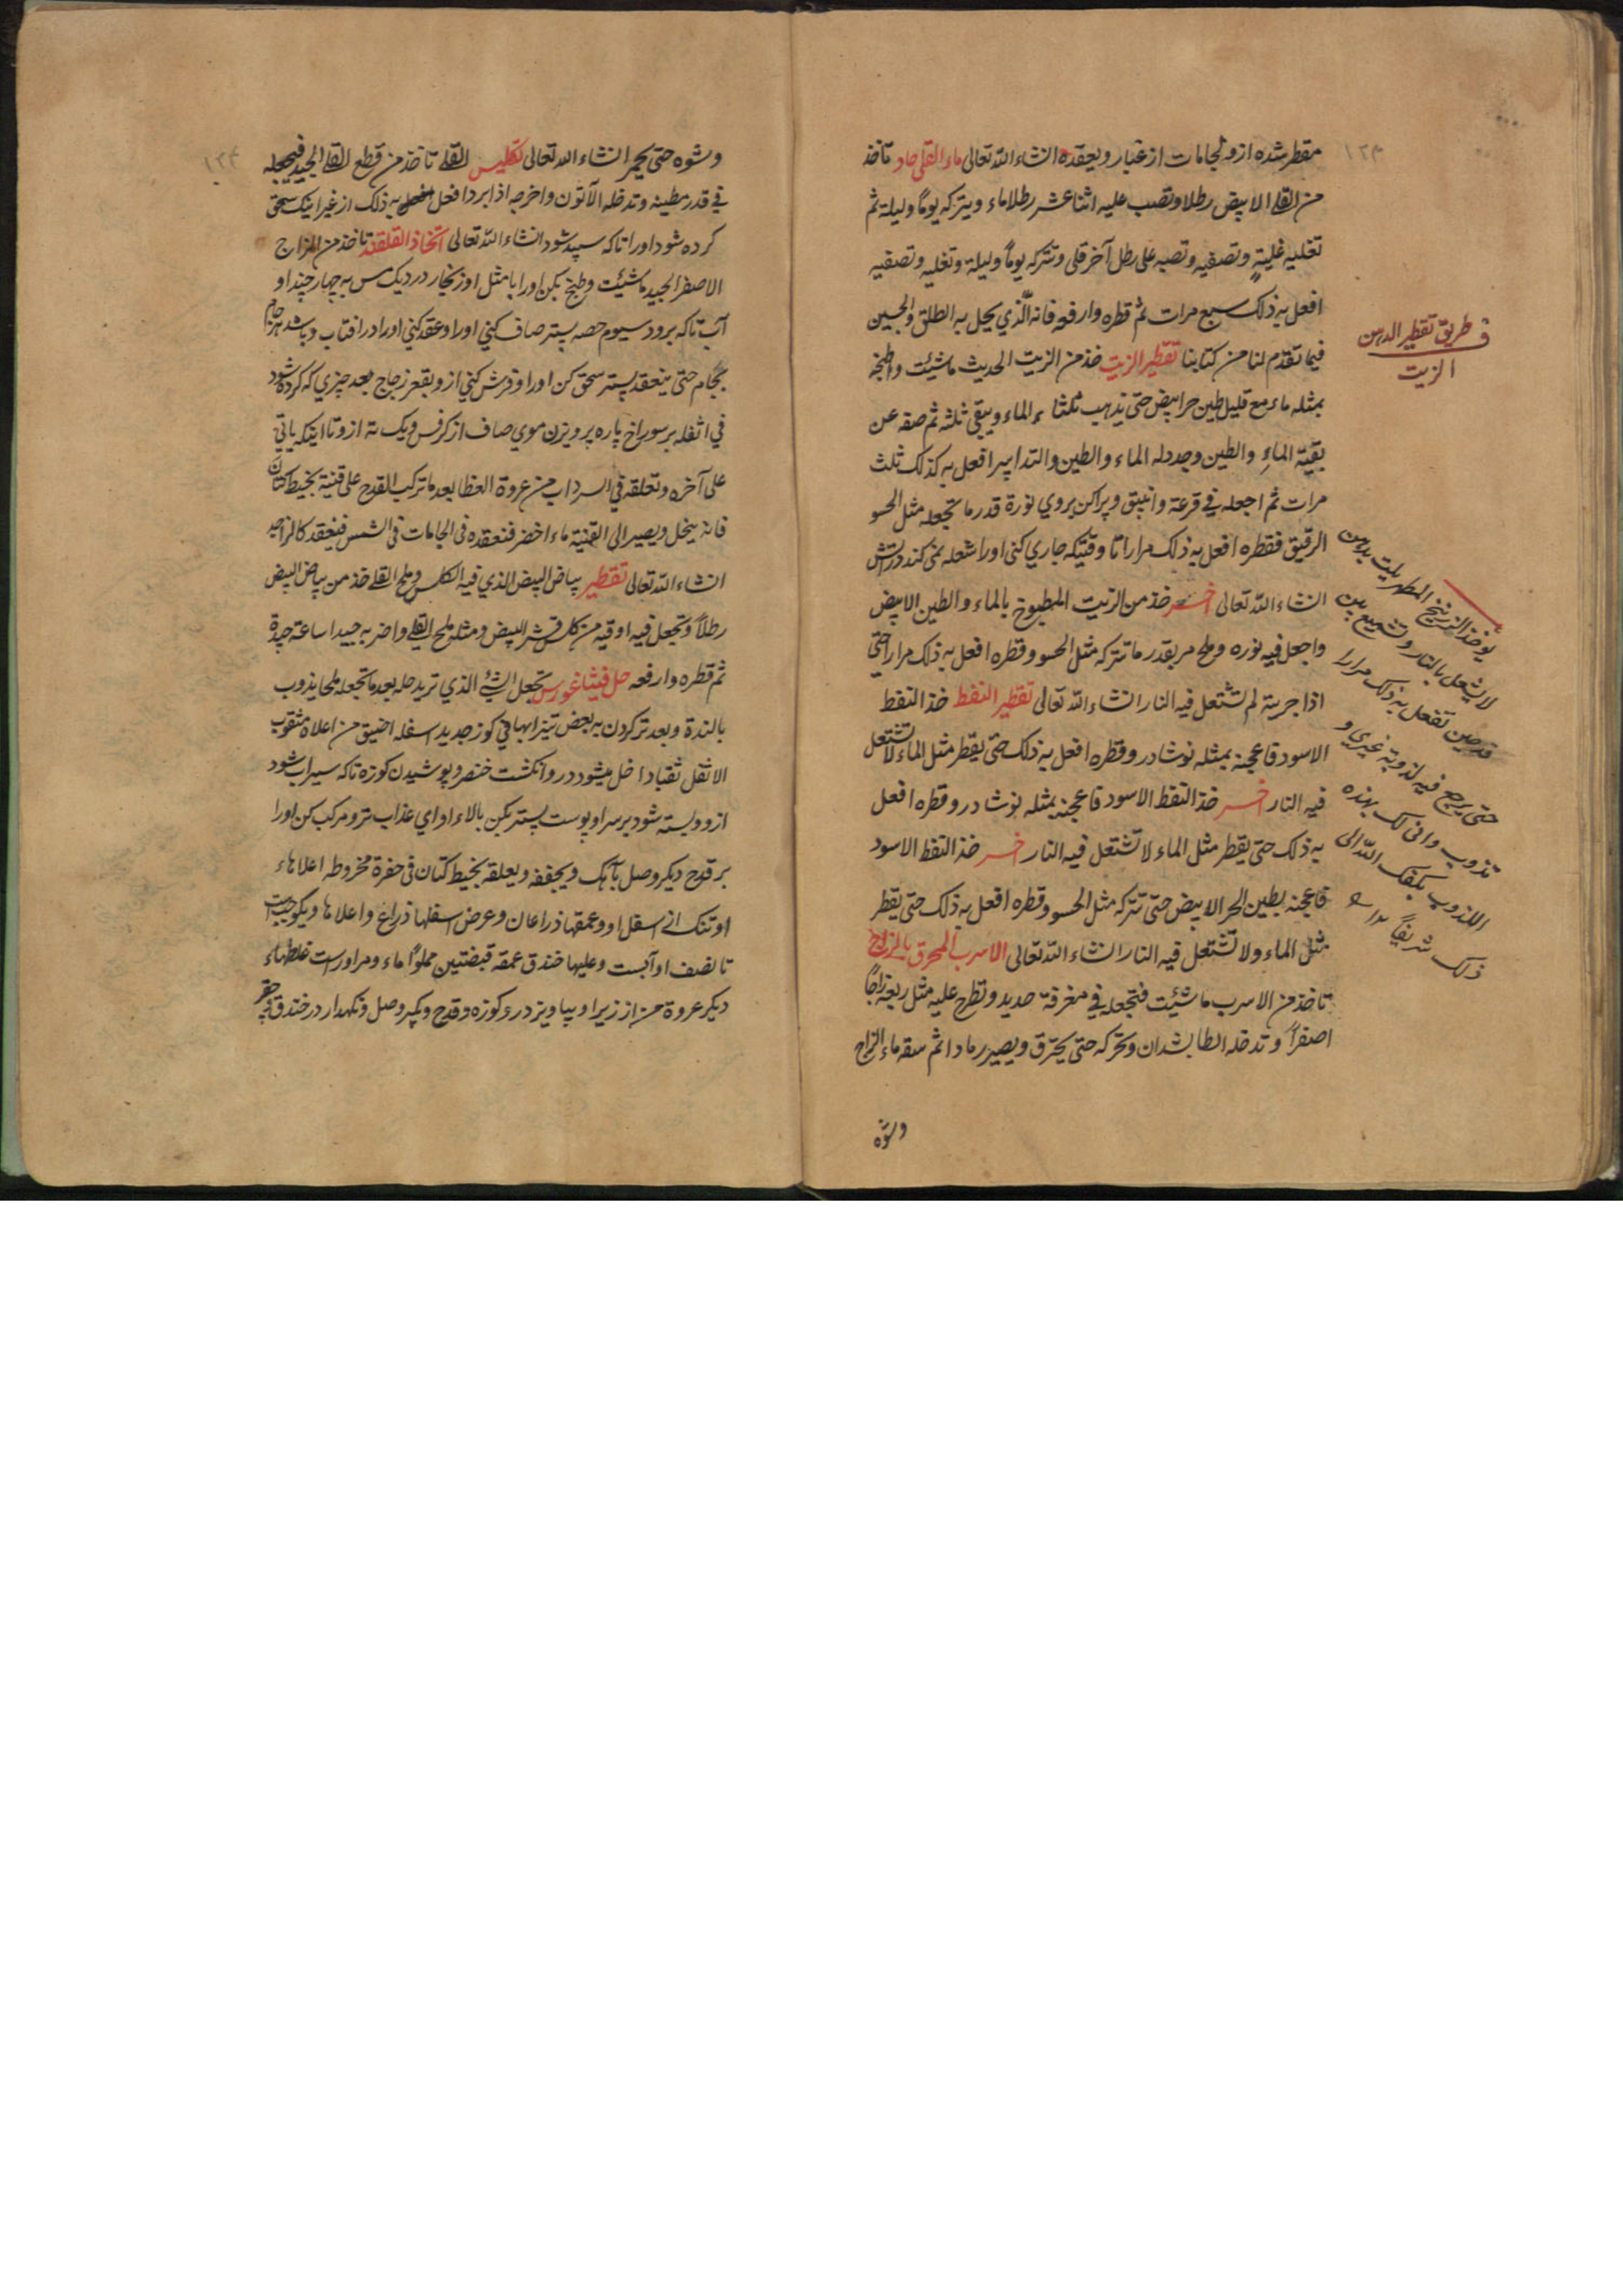 ١٢٣
مقطر شده ازو بجامات از غبار ويعقده انشاء الله تعالى ماء القلى حاد تاخذ
من القلى الابيض رطلا وتصب عليه اثنا عشر رطلا ماء ويتركه يوماً وليلة ثم
تغليه غليةٍ وتصفيه وتصبه على رطل آخر قلى وتتركه يوماً وليلة وتغليه وتصفيه
افعل به ذلك سبع مرات ثم قطره وارفعه فانه الّذي يحل به الطلق والجبن
فيما تقدم لنا من كتابنا تقطير الزيت خذ من الزيت الحديث ماشئت واطبخه
بمثله ماء مع قليل طين حر ابيض حتى يذهب ثلثا الماء ويبقى ثلثه ثم صفه عن
بقيّة الماءِ والطين وجدد له الماء والطين والتدابير افعل به كذلك ثلث
مرات ثم اجعله في قرعة وانبيق وپراكن بروي نورة قدر ما تجعله مثل الحسو
الرقيق فقطره افعل به ذلك مرارا تا وقتيكه جاري كنى اورا شعله نمى كند در آتش
انشاء الله تعالى اخـــر خذ من الزيت المطبوخ بالماء والطين الابيض
واجعل فيه نوره وملح مر بقدر ما تتركه مثل الحسو وقطره افعل به ذلك مرارا حتى
اذا جربته لم تشتعل فيه النار انشاء الله تعالى تقطير النفط خذ النفط
الاسود فاعجنه بمثله نوشادر وقطره افعل به ذلك حتى يقطر مثل الماء لا تشتعل
فيه النار اخـــر خذ النفط الاسود فاعجنه بمثله نوشادر وقطره افعل
به ذلك حتى يقطر مثل الماء لا تشتعل فيه النار اخـــر خذ النفط الاسود
فاعجنه بطين الحر الابيض حتى تتركه مثل الحسو وقطره افعل به ذلك حتى يقطر
مثل الماء ولا تشتعل فيه النار انشاء الله تعالى الاسرب المحرق بالزاج
تاخذ من الاسرب ماشئت فتجعله في مغرفة حديد وتطرح عليه مثل ربعه زاجاً
اصفراً وتدخله الطابشدان وتحركه حتى يحترق ويصير رمادا ثم سقه ماء الزاج
وشوه
في طريق تقطير الدهن
الزيت
يوخذ الزرنيخ المطر بدهن
لا يشعل بالنار وتشميع بين
قدحين تفعل به ذلك مرارا
حتى يرجع فيه لذوبة غيري و
تذوب وانى لك بهذه
اللذوب يكفك الله الى
ذلك شريفاً
١٢٤
وشوه حتى يحمر انشاء الله تعالى تكليس القلى تاخذ من قطع القلى الجيد فيجعله
في قدر مطينه وتدخله الآتون واخرجه اذا برد افعل به ذلك از غير اينكه سحق
كرده شود اورا تاكه سپيد شود انشاء الله تعالى اتخاذ القلقند تاخذ من الزاج
الاصفر الجيد ماشئت وطبخ بكن اورا با مثل او زنجار در ديك مس به چهار چند او
آب تاكه برود سيوم حصه پستر صاف كني اورا وعقد كني اورا در افتاب وباشد هر جام
بجام حتى ينعقد پستر سحق كن اورا وفرش كني ازو بقعر زجاج بعد چيزي كه كرده شود
في اثفله بر سوراخ پاره پرويزن موي صاف از كرفس ويك ته ازو تا اينكه ياتي
على آخره وتعلقه في السرداب من عروة الغطا بعد ما تركب القدح على قنينة بخيط كتان
فانه ينحل ويصير الى القنينة ماء اخضر فتعقده في الجامات في الشمس فينعقد كالزاجيه
انشاء الله تعالى تقطير بياض البيض الذي فيه الكلس وملح القلى خذ من بياض البيض
رطلاً وتجعل فيه اوقيه من كلس قشر البيض ومثله ملح القلى واضربه جيدا ساعة جيدة
ثم قطره وارفعه حل فيثاغورس تجعل الشئ الذي تريد حله بعد ما تجعله ملحا يذوب
بالندة وبعد تر كردن به بعض تيزابها في كوز جديد اسفله اضيق من اعلاه مثقوب
الاثقل ثقبا داخل ميشود درو انكشت خنصر وپوشيدن كوزه تاكه سيراب شود
ازو وبسته شود بر سر او پوست پستر بكن بالاء او اي عذاب تر ومركب كن اورا
بر قدح ديكر وصل بآهك ويجففه ويعلقه بخيط كتان في حفرة مخروطه اعلاهاء
او تنك از اسفل او وعمقها ذراعان وعرض اسفلها ذراع واعلاها ويكوجبت
تا نصف او آبست وعليها خندق عمقه قبضتين مملواً ماء ومر اوراست غلطهاء
ديكر عروة من از زير او بياويزد درو كوزه وقدح ويكپر وصل ونكهدار در خندق